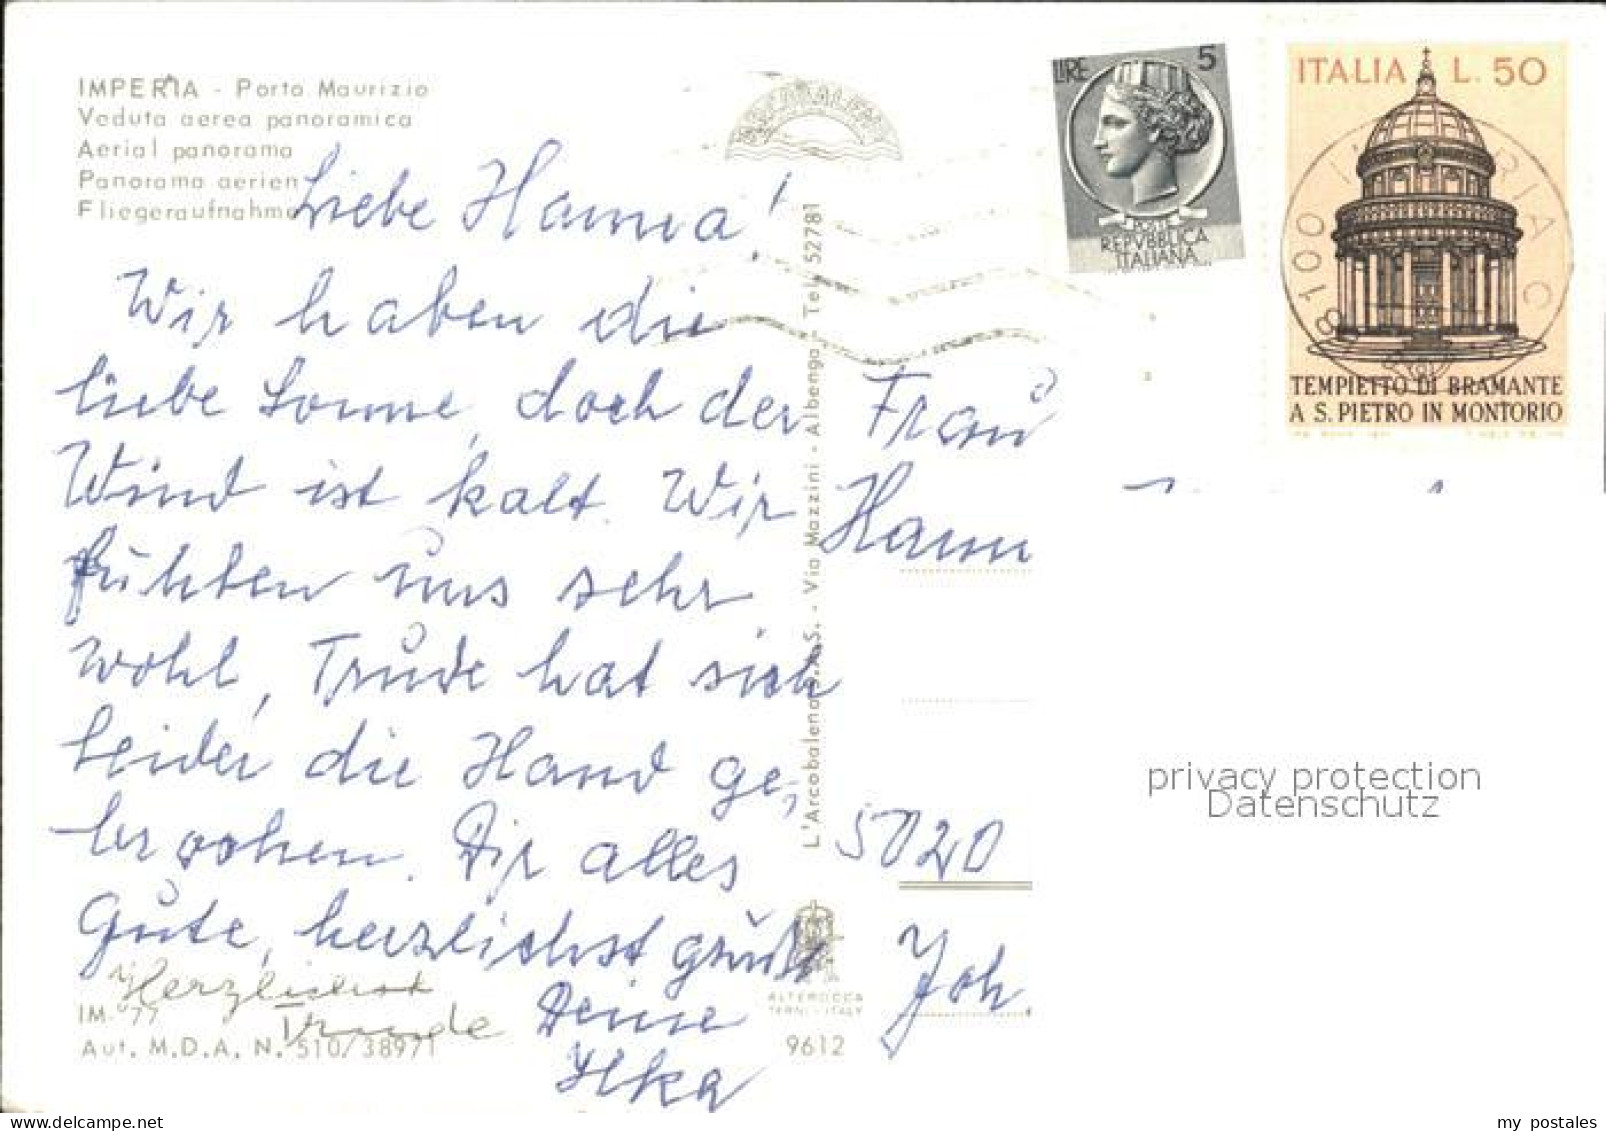 IMPERIA - Porto Maurizio
Veduta aerea panoramica
Aerial panorama
Panorama aerien
Fliegeraufnahme
Liebe Hanna!
Wir haben die
liebe Sonne, doch der
Wind ist kalt. Wir
fühlen uns sehr
wohl, Trude hat sich
leider die Hand ge,
brochen. Dir alles
Gute, herzlichst grüßt
Deine
Ilka
Herzlichst
Trude
IM- 77
Aut. M.D.A. N. 510/38971
L'Arcobaleno S.A.S. - Via Mazzini - Albenga - Tel. 52781
ALTEROCCA
TERNI - ITALY
9612
LIRE 5
POSTE
REPVBBLICA
ITALIANA
ITALIA L. 50
TEMPIETTO DI BRAMANTE
A S. PIETRO IN MONTORIO
18100
Frau
Hann
5020
Joh.
privacy protection
Datenschutz
my postales